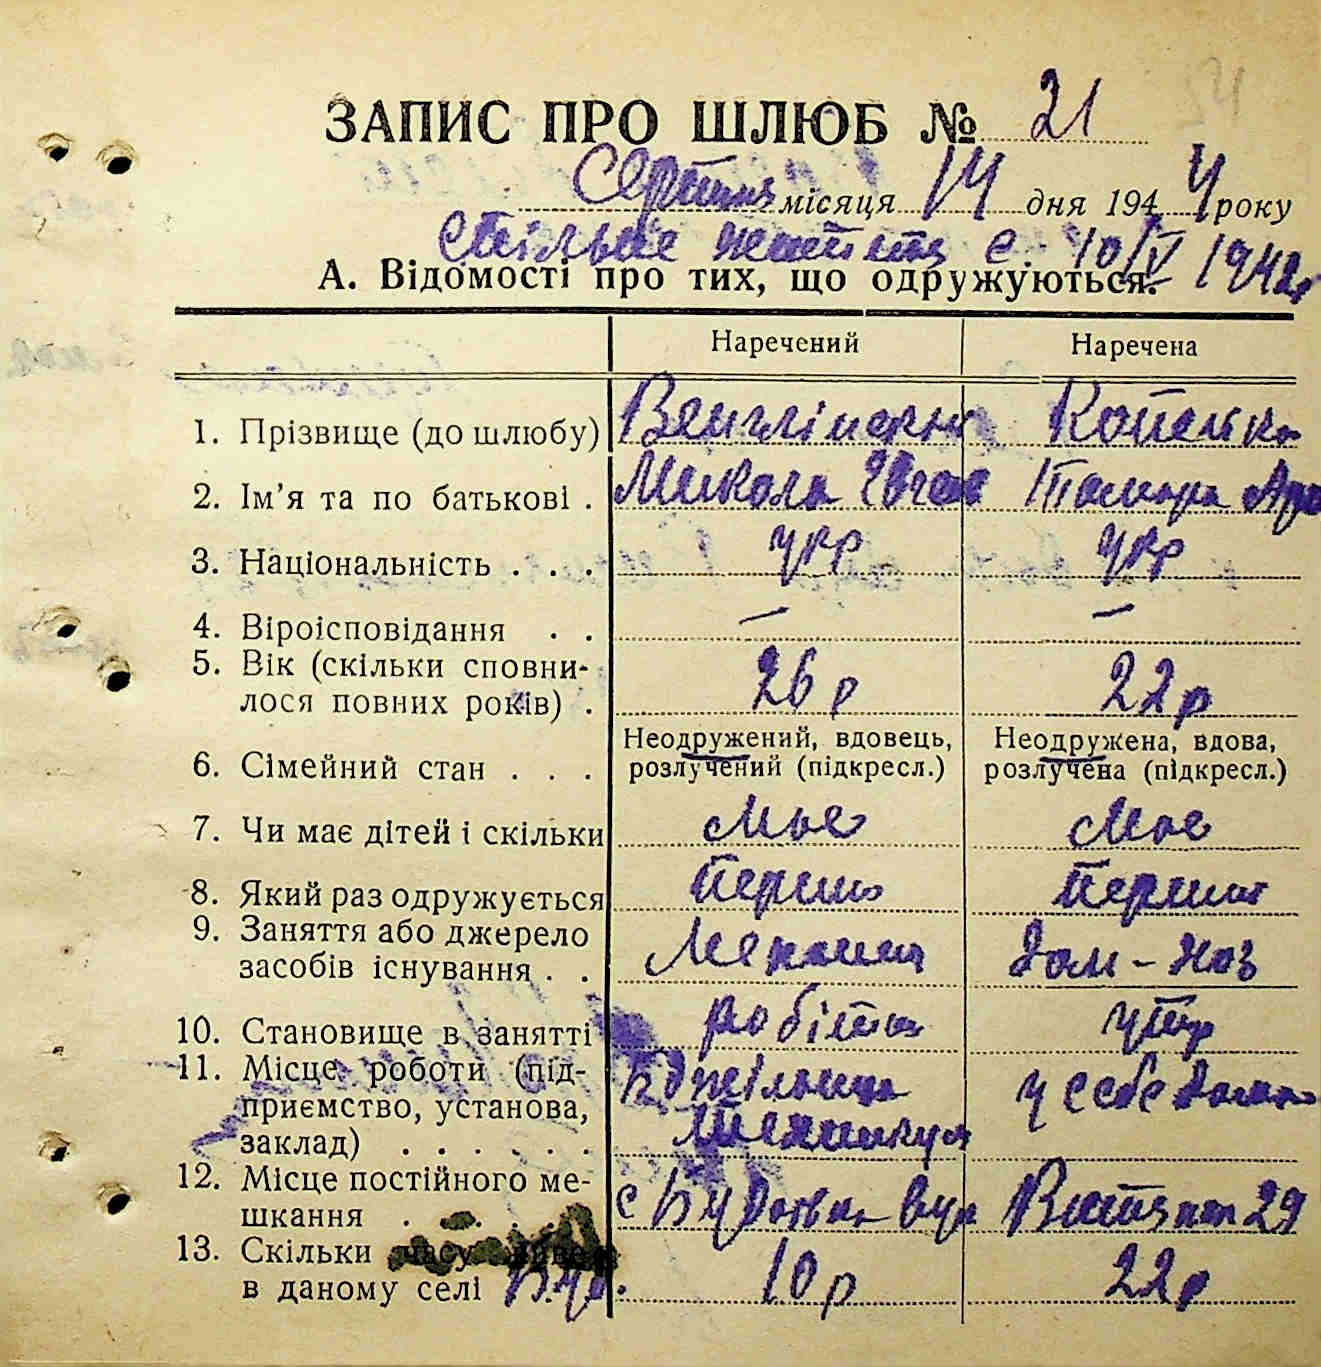 ЗАПИС ПРО ШЛЮБ № 21
Серпня місяця 14 дня 1944 року
Спільне життя с 10/IV 1942
А. Відомості про тих, що одружуються.
Наречений Наречена
1. Прізвище (до шлюбу)
2. Ім'я та по батькові . Микола Тамара
3. Національність . . . укр укр
4. Віроісповідання . . — —
5. Вік (скільки сповни-
лося повних років) . 26 р 22 р
6. Сімейний стан . . . Неодружений, вдовець, розлучений (підкресл.) Неодружена, вдова, розлучена (підкресл.)
7. Чи має дітей і скільки
8. Який раз одружується перший перший
9. Заняття або джерело
засобів існування . . Дом-хоз
10. Становище в занятті утр
11. Місце роботи (під-
приємство, установа,
заклад) . . . . . . у себе дома
12. Місце постійного ме-
шкання . . . . с вул 29
13. Скільки часу живе
в даному селі 10 р 22 р